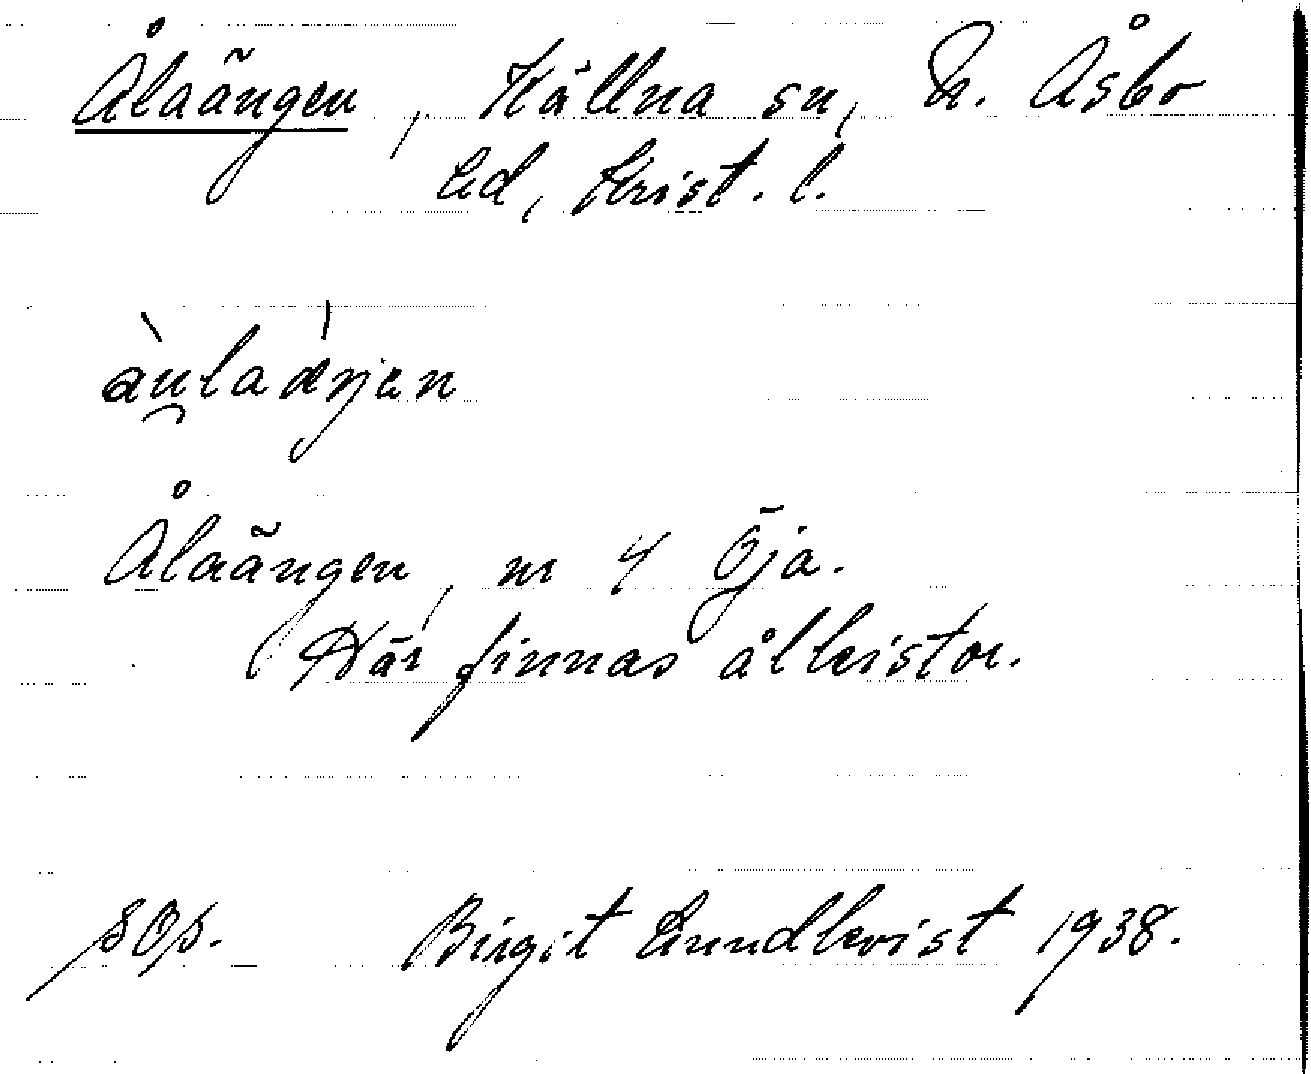 Ålaängen, Källna sn, N. Åsbo
hd, Krist. l.
àu̯laæ̍ŋən
Ålaängen, nr 4 Öja.
Här finnas ålkistor.
sOp. Birgit Lundkvist 1938.